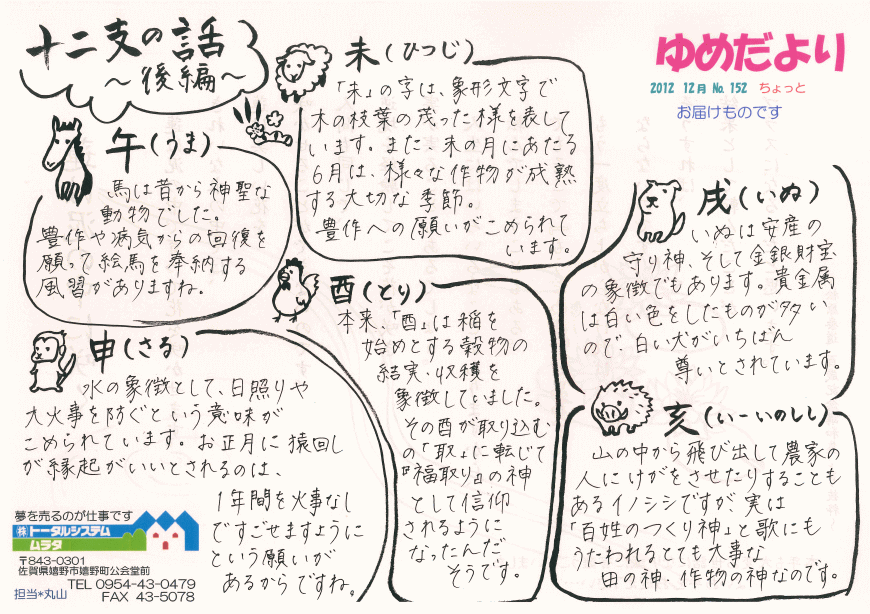 十二支の話
～後編～
ゆめだより
2012 12月 No. 152 ちょっと
お届けものです
午(うま)
馬は昔から神聖な
動物でした。
豊作や病気からの回復を
願って絵馬を奉納する
風習がありますね。
未(ひつじ)
「未」の字は、象形文字で
木の枝葉の茂った様を表して
います。また、未の月にあたる
6月は、様々な作物が成熟
する大切な季節。
豊作への願いがこめられて
います。
申(さる)
水の象徴として、日照りや
大火事を防ぐという意味が
こめられています。お正月に猿回し
が縁起がいいとされるのは、
1年間を火事なし
ですごせますように
という願いが
あるからですね。
酉(とり)
本来、「酉」は稲を
始めとする穀物の
結実・収穫を
象徴していました。
その酉が取り込む
の「取」に転じて
『福取り』の神
として信仰
されるように
なったんだ
そうです。
戌(いぬ)
いぬは安産の
守り神、そして金銀財宝
の象徴でもあります。貴金属
は白い色をしたものが多い
ので、白い犬がいちばん
尊いとされています。
亥(いーいのしし)
山の中から飛び出して農家の
人にけがをさせたりすることも
あるイノシシですが、実は
「百姓のつくり神」と歌にも
うたわれるとても大事な
田の神・作物の神なのです。
夢を売るのが仕事です
㈱トータルシステム
ムラタ
〒843-0301
佐賀県嬉野市嬉野町公会堂前
TEL 0954-43-0479
FAX 43-5078
担当*丸山